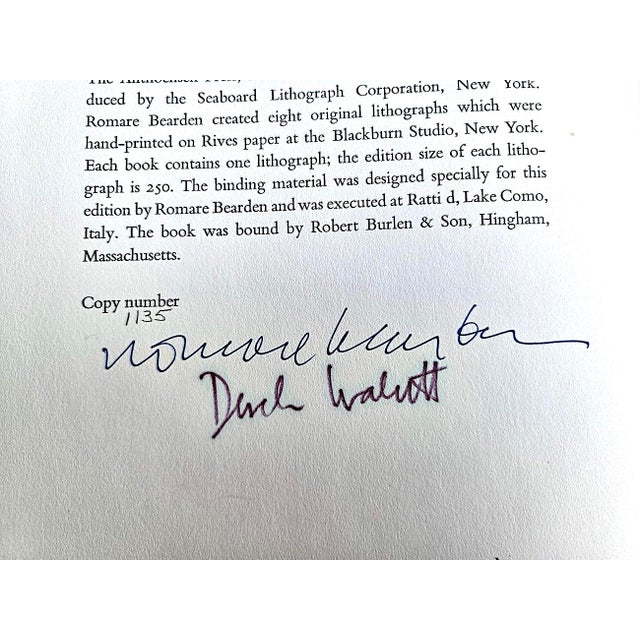 The Anthoensen Press,
duced by the Seaboard Lithograph Corporation, New York.
Romare Bearden created eight original lithographs which were
hand-printed on Rives paper at the Blackburn Studio, New York.
Each book contains one lithograph; the edition size of each litho-
graph is 250. The binding material was designed specially for this
edition by Romare Bearden and was executed at Ratti d, Lake Como,
Italy. The book was bound by Robert Burlen & Son, Hingham,
Massachusetts.
Copy number
1135
Romare Bearden
Derek Walcott